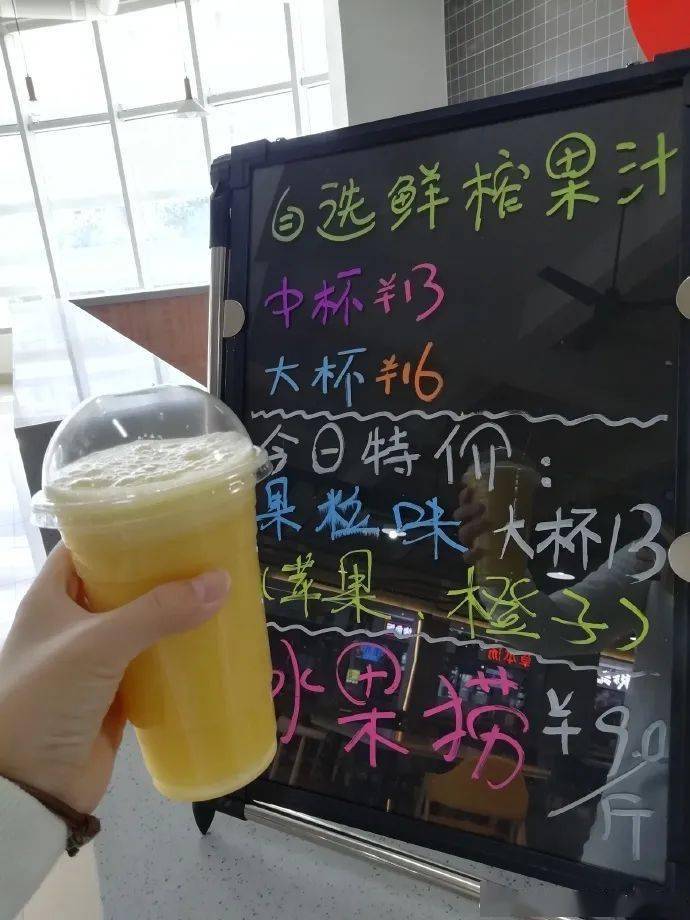 自选鲜榨果汁
中杯¥13
大杯¥16
今日特价：
果粒味 大杯13
（苹果、橙子）
水果捞 ¥9.0/斤